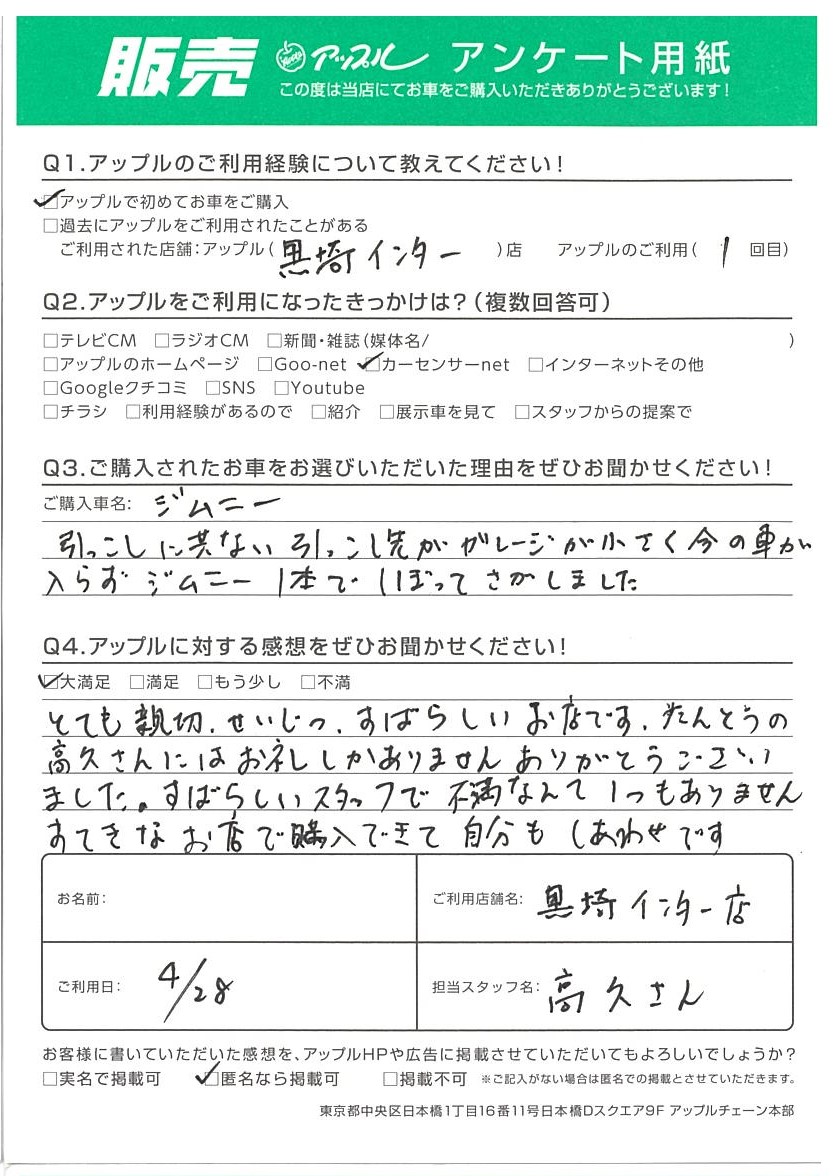 販売 アップル アンケート用紙
この度は当店にてお車をご購入いただきありがとうございます!
Q1.アップルのご利用経験について教えてください!
☑アップルで初めてお車をご購入
□過去にアップルをご利用されたことがある
ご利用された店舗:アップル(黒埼インター)店 アップルのご利用(1回目)
Q2.アップルをご利用になったきっかけは?(複数回答可)
□テレビCM □ラジオCM □新聞・雑誌(媒体名/ )
□アップルのホームページ □Goo-net ☑カーセンサーnet □インターネットその他
□Googleクチコミ □SNS □Youtube
□チラシ □利用経験があるので □紹介 □展示車を見て □スタッフからの提案で
Q3.ご購入されたお車をお選びいただいた理由をぜひお聞かせください!
ご購入車名: ジムニー
引っこしに共ない引っこし先がガレージが小さく今の車が
入らず ジムニー 1本で しぼって さがしました
Q4.アップルに対する感想をぜひお聞かせください!
☑大満足 □満足 □もう少し □不満
とても親切、せいじつ、すばらしいお店です、たんとうの
高久さんにはお礼しかありませんありがとうござい
ました。すばらしいスタッフで不満なんて1つもありません
すてきなお店で購入できて自分もしあわせです
お名前: ご利用店舗名: 黒埼インター店
ご利用日: 4/28 担当スタッフ名: 高久さん
お客様に書いていただいた感想を、アップルHPや広告に掲載させていただいてもよろしいでしょうか?
□実名で掲載可 ☑匿名なら掲載可 □掲載不可 ※ご記入がない場合は匿名での掲載とさせていただきます。
東京都中央区日本橋1丁目16番11号日本橋Dスクエア9F アップルチェーン本部